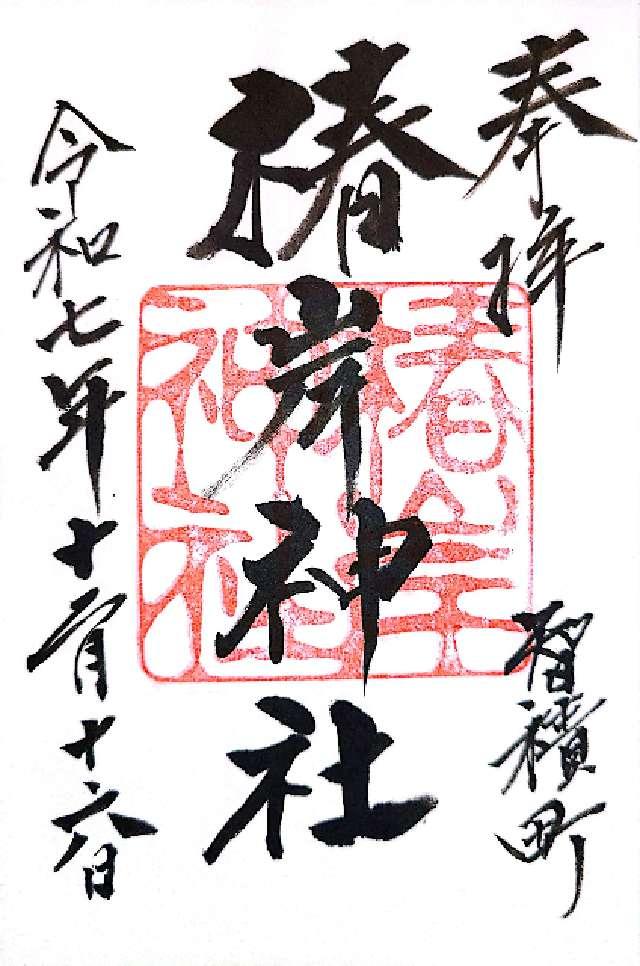 奉拝
智積町
椿岸神社
令和七年十二月十六日